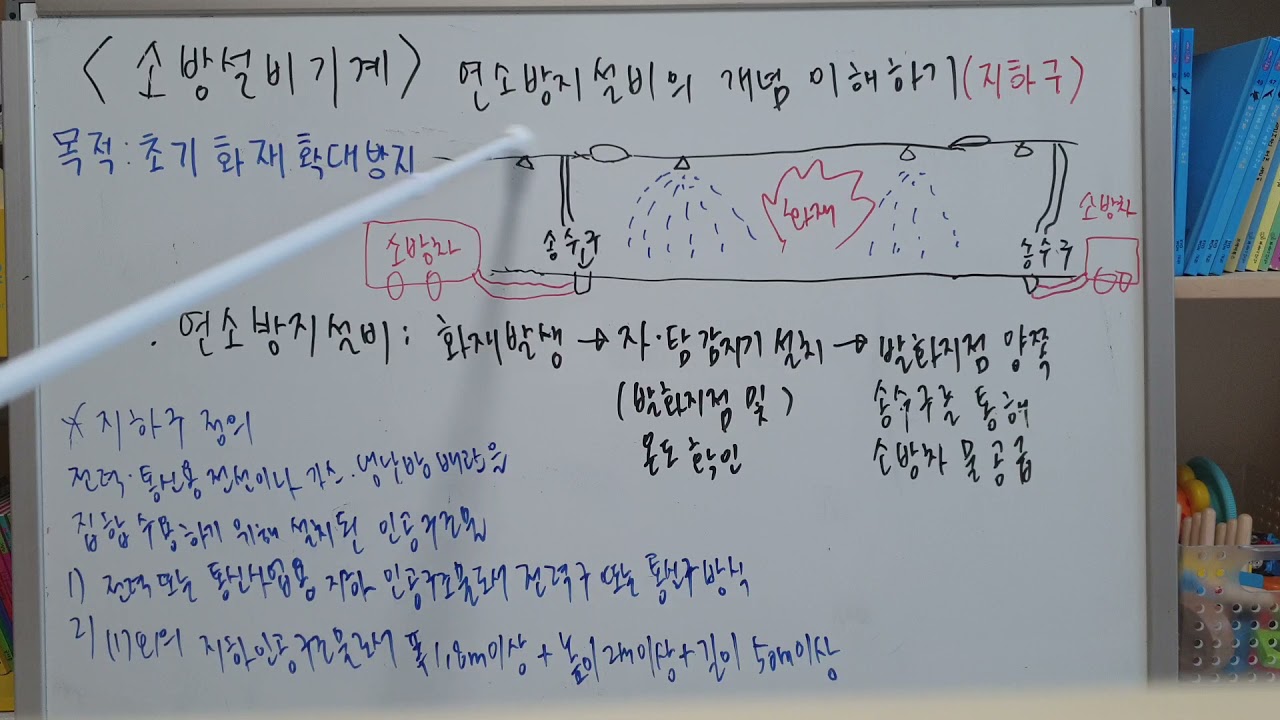 <소방설비기계> 연소방지설비의 개념 이해하기(지하구)
목적: 초기 화재 확대방지
화재
소방차
송수구
송수구
소방차
· 연소방지설비: 화재발생 → 자·탐 감지기 설치 → 발화지점 양쪽
(발화지점 및) 송수구를 통해
온도 확인 소방차 물 공급
* 지하구 정의
전력·통신용 전선이나 가스·냉난방 배관을
집합 수용하기 위해 설치된 인공구조물
1) 전력 또는 통신사업용 지하 인공구조물로서 전력구 또는 통신구 방식
2) (1)외의 지하인공구조물로서 폭1.8m이상 + 높이 2m이상 + 길이 50m이상